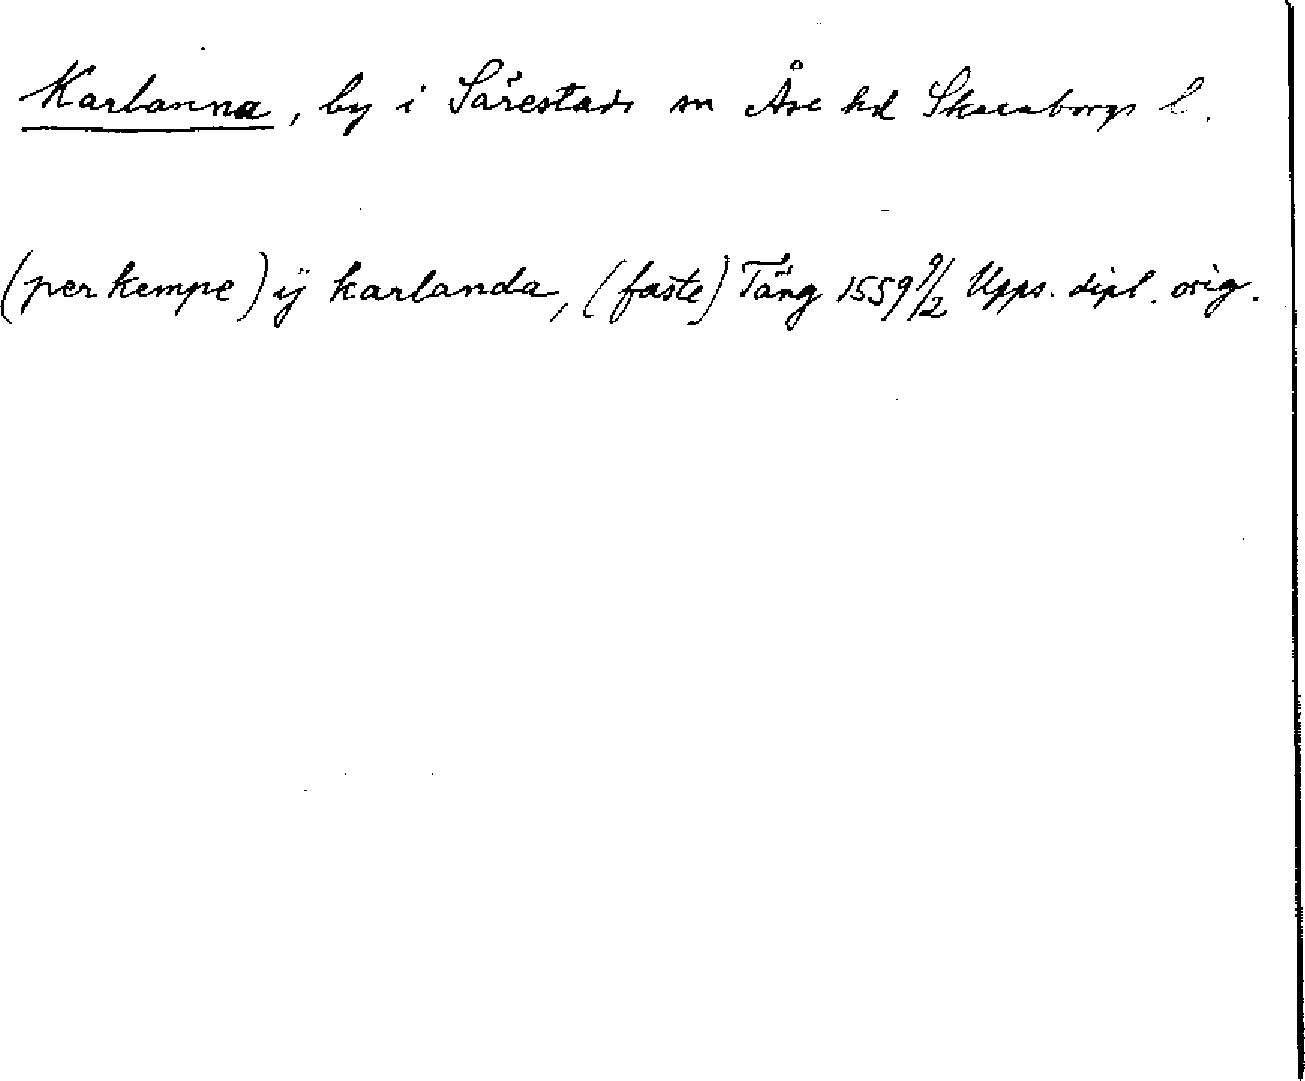 Karlanna, by i Särestads sn Åse hd Skaraborgs l.
(per kempe) ij karlanda, (faste) Täng 1559 9/2 Upps. dipl. orig.